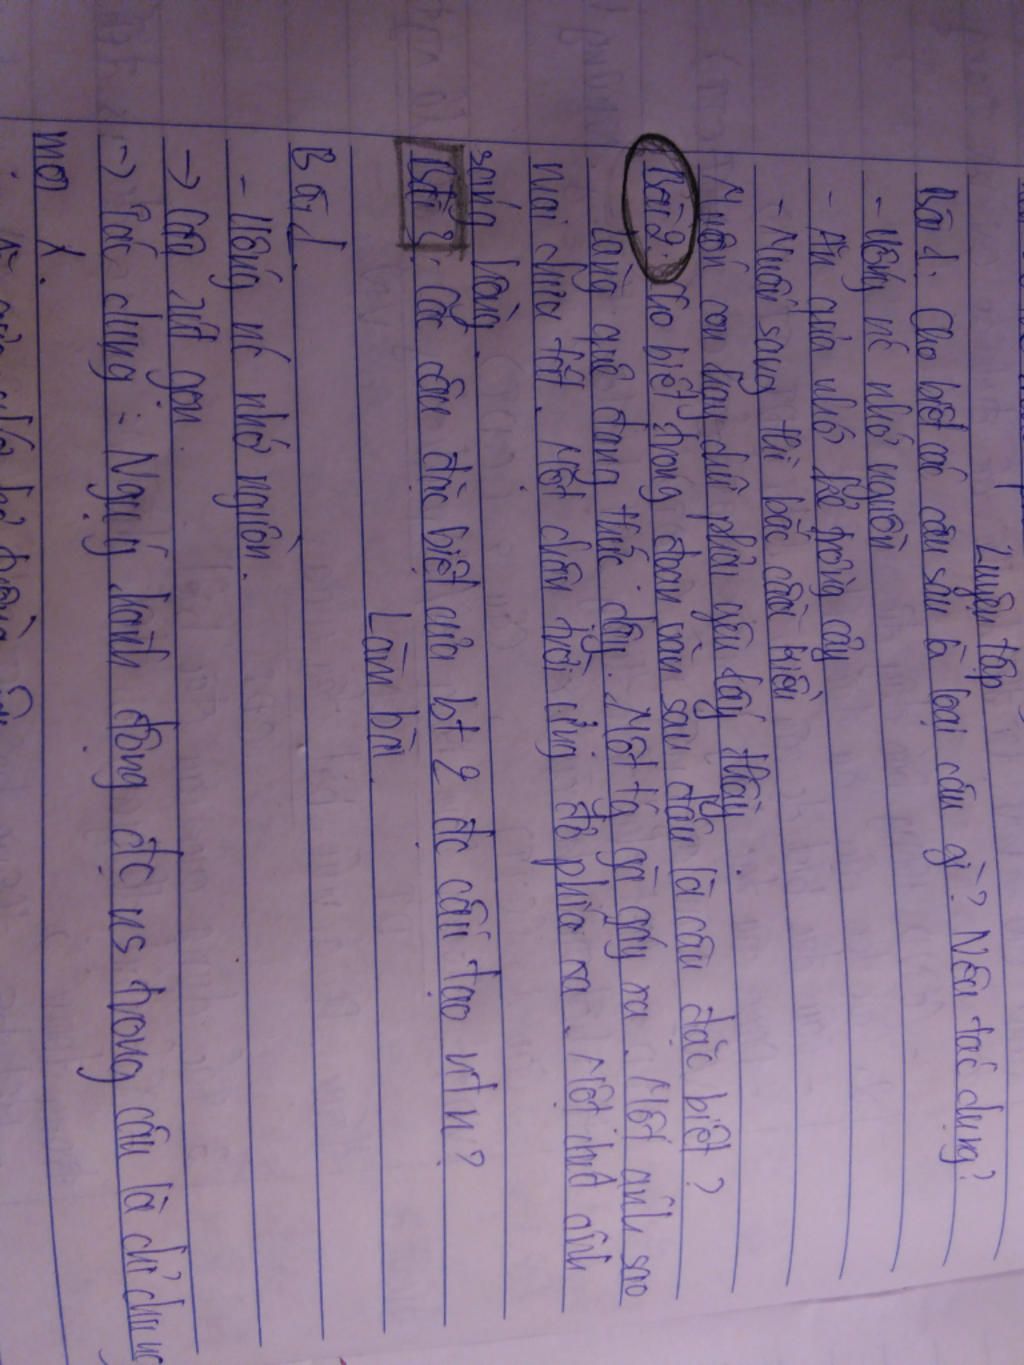 Luyện tập
Bài 1: Cho biết các câu sau là loại câu gì? Nêu tác dụng?
- Uống nc nhớ nguồn
- Ăn quả nhớ kẻ trồng cây
- Muốn sang thì bắc cầu kiều
Muốn con hay chữ phải yêu lấy thầy.
Bài 2: Cho biết trong đoạn văn sau đâu là câu đặc biệt?
Làng quê đang thức dậy. Một tá gà gáy ra. Một ánh sao
mai chưa tắt. Một chân trời ửng đỏ phía xa. Một chút ánh
sáng hồng.
Bài 3: Các câu đặc biệt của bt 2 đc cấu tạo ntn?
Làm bài.
Bài 1.
- Uống nc nhớ nguồn.
-> Câu rút gọn.
-> Tác dụng: Ngụ ý hành động đc ns trong câu là chỉ chung
mọi